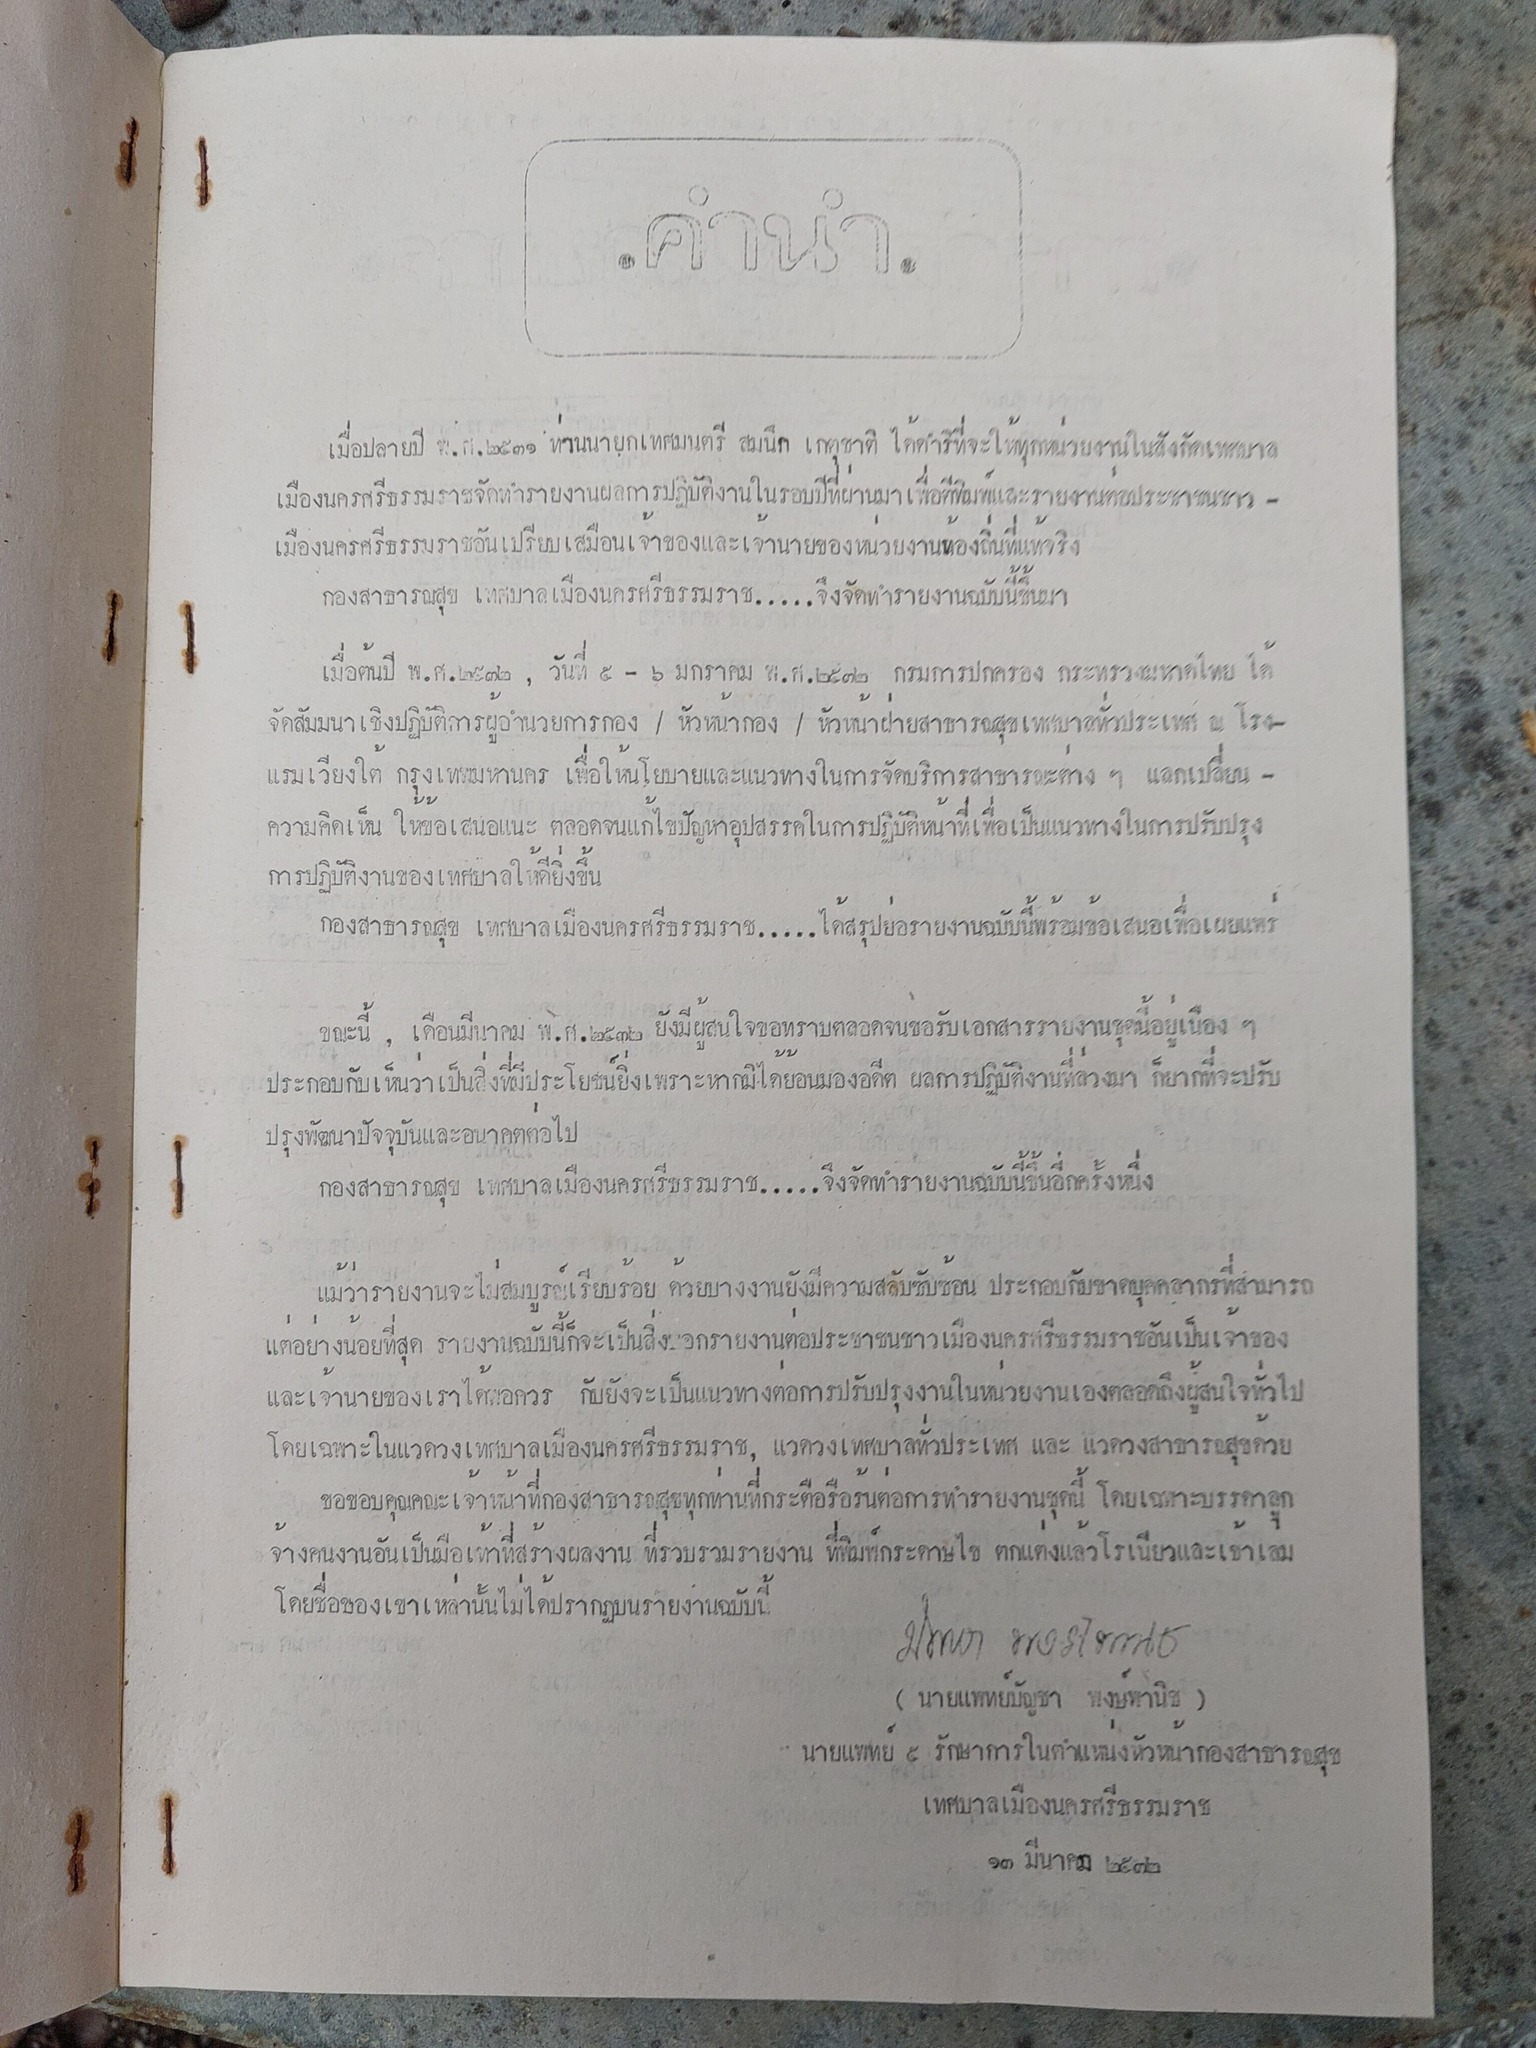 .คำนำ.
เมื่อปลายปี พ.ศ.๒๕๓๑ ท่านนายกเทศมนตรี สมนึก เกตุชาติ ได้ดำริที่จะให้ทุกหน่วยงานในสังกัดเทศบาล
เมืองนครศรีธรรมราชจัดทำรายงานผลการปฏิบัติงานในรอบปีที่ผ่านมาเพื่อตีพิมพ์และรายงานต่อประชาชนชาว -
เมืองนครศรีธรรมราชอันเปรียบเสมือนเจ้าของและเจ้านายของหน่วยงานท้องถิ่นที่แท้จริง
กองสาธารณสุข เทศบาลเมืองนครศรีธรรมราช.....จึงจัดทำรายงานฉบับนี้ขึ้นมา
เมื่อต้นปี พ.ศ.๒๕๓๒ , วันที่ ๕ - ๖ มกราคม พ.ศ.๒๕๓๒ กรมการปกครอง กระทรวงมหาดไทย ได้
จัดสัมมนาเชิงปฏิบัติการผู้อำนวยการกอง / หัวหน้ากอง / หัวหน้าฝ่ายสาธารณสุขเทศบาลทั่วประเทศ ณ โรง-
แรมเวียงใต้ กรุงเทพมหานคร เพื่อให้นโยบายและแนวทางในการจัดบริการสาธารณะต่าง ๆ แลกเปลี่ยน -
ความคิดเห็น ให้ข้อเสนอแนะ ตลอดจนแก้ไขปัญหาอุปสรรคในการปฏิบัติหน้าที่เพื่อเป็นแนวทางในการปรับปรุง
การปฏิบัติงานของเทศบาลให้ดียิ่งขึ้น
กองสาธารณสุข เทศบาลเมืองนครศรีธรรมราช.....ได้สรุปย่อรายงานฉบับนี้พร้อมข้อเสนอเพื่อเผยแพร่
ขณะนี้ , เดือนมีนาคม พ.ศ.๒๕๓๒ ยังมีผู้สนใจขอทราบตลอดจนขอรับเอกสารรายงานชุดนี้อยู่เนือง ๆ
ประกอบกับเห็นว่าเป็นสิ่งที่มีประโยชน์ยิ่งเพราะหากมิได้ย้อนมองอดีต ผลการปฏิบัติงานที่ล่วงมา ก็ยากที่จะปรับ
ปรุงพัฒนาปัจจุบันและอนาคตต่อไป
กองสาธารณสุข เทศบาลเมืองนครศรีธรรมราช.....จึงจัดทำรายงานฉบับนี้ขึ้นอีกครั้งหนึ่ง
แม้ว่ารายงานจะไม่สมบูรณ์เรียบร้อย ด้วยบางงานยังมีความสลับซับซ้อน ประกอบกับขาดบุคคลากรที่สามารถ
แต่อย่างน้อยที่สุด รายงานฉบับนี้ก็จะเป็นสิ่งบอกรายงานต่อประชาชนชาวเมืองนครศรีธรรมราชอันเป็นเจ้าของ
และเจ้านายของเราได้พอควร กับยังจะเป็นแนวทางต่อการปรับปรุงงานในหน่วยงานเองตลอดถึงผู้สนใจทั่วไป
โดยเฉพาะในแวดวงเทศบาลเมืองนครศรีธรรมราช, แวดวงเทศบาลทั่วประเทศ และ แวดวงสาธารณสุขด้วย
ขอขอบคุณคณะเจ้าหน้าที่กองสาธารณสุขทุกท่านที่กระตือรือร้นต่อการทำรายงานชุดนี้ โดยเฉพาะบรรดาลูก
จ้างคนงานอันเป็นมือเท้าที่สร้างผลงาน ที่รวบรวมรายงาน ที่พิมพ์กระดาษไข ตกแต่งแล้วโรเนียวและเข้าเล่ม
โดยชื่อของเขาเหล่านั้นไม่ได้ปรากฏบนรายงานฉบับนี้
บัญชา พงษ์พานิช
( นายแพทย์บัญชา พงษ์พานิช )
นายแพทย์ ๕ รักษาการในตำแหน่งหัวหน้ากองสาธารณสุข
เทศบาลเมืองนครศรีธรรมราช
๑๓ มีนาคม ๒๕๓๒